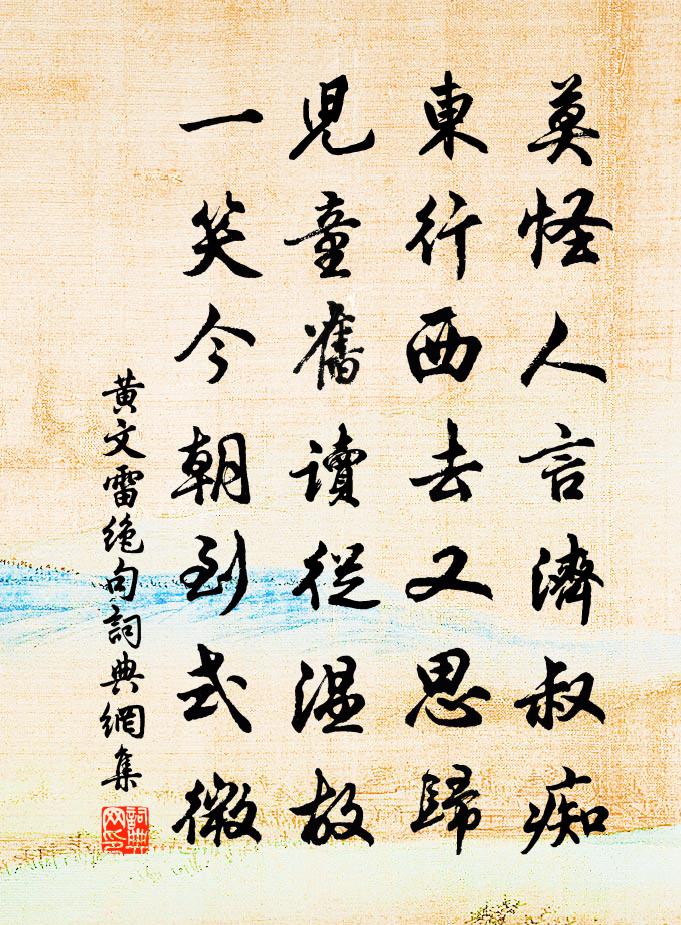 莫怪人言濟叔痴
東行西去又思歸
兒童舊讀從溫故
一笑今朝到式微
黃文雷絶句詞典網集
詞典
网